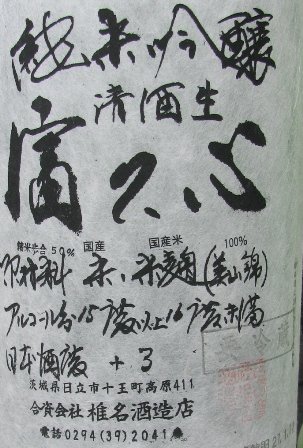 純米吟醸
清酒生
富久心
精米歩合50% 国産 国産米 100%
原材料 米、米麹(美山錦)
アルコール分15度以上16度未満
日本酒度 +3
茨城県日立市十王町高原411
合資会社 椎名酒造店
電話0294(39)2041